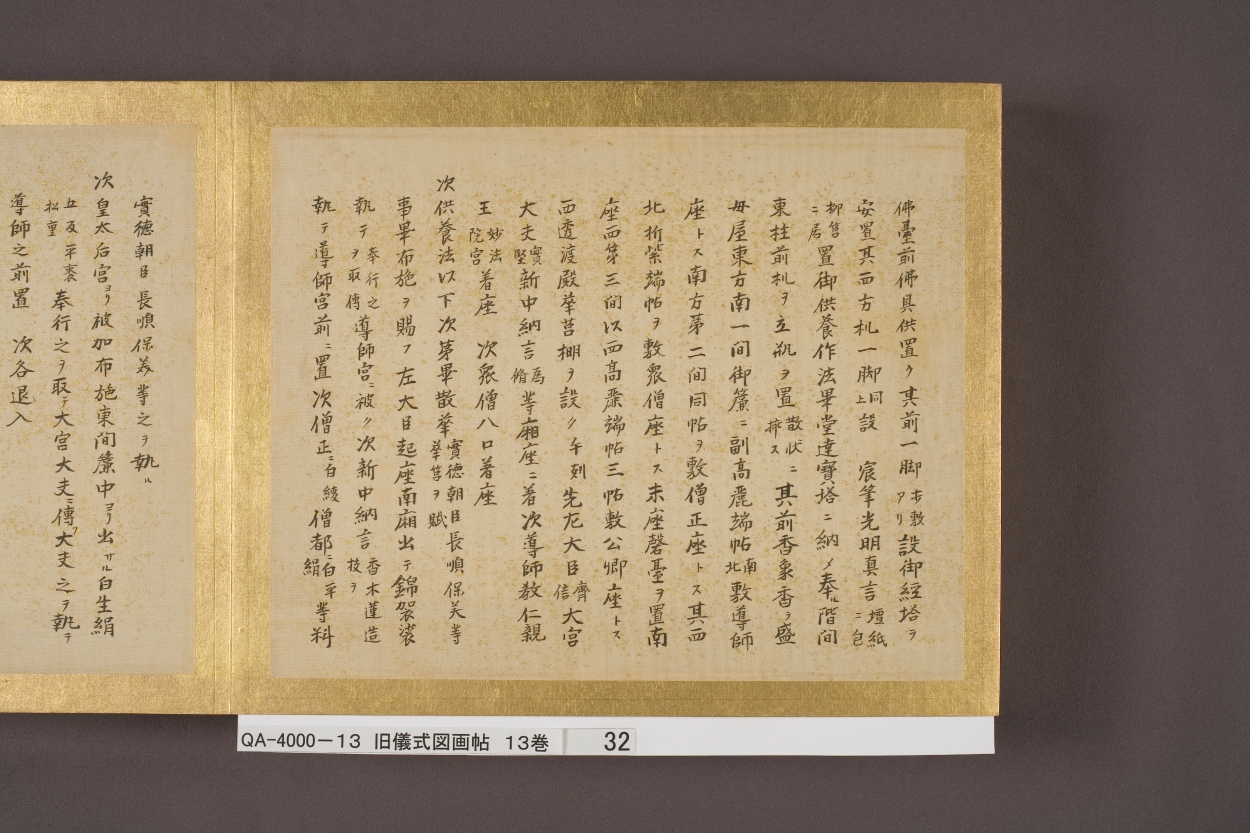 佛臺前佛具供置ク其前一脚布敷アリ設御經塔ヲ
安置其西方札一脚同上設　宸筆光明真言壇紙ニ包
柳筥ニ居置御供養作法畢堂達寶塔ニ納メ奉ル階間
東柱前札ヲ立瓶ヲ置散状ニ挿ス其前香象香ヲ盛
母屋東方南一間御簾ニ副高麗端帖南北敷導師
座トス南方第二間同帖ヲ敷僧正座トス其西
北折紫端帖ヲ敷衆僧座トス末座磬臺ヲ置南
座西第三間以西高麗端帖三帖敷公卿座トス
西透渡殿華筥棚ヲ設ク午刻先左大臣齊信大宮
大夫實堅新中納言爲脩等廂座ニ着次導師教仁親
王妙法院宮着座　次衆僧八口着座
次供養法以下次第畢散華實德朝臣長順保美等華筥ヲ賦
事畢布施ヲ賜フ左大臣起座南廂出テ錦袈裟
執テ奉行之ヲ取傳導師宮ニ被ク次新中納言香木蓮造枝ヲ
執テ導師宮前ニ置次僧正ニ白綾僧都ニ白平絹等料
實德朝臣長順保美等之ヲ執ル
次皇太后宮ヨリ被加布施東間簾中ヨリ出サル白生絹
五反平裹松重奉行之ヲ取テ大宮大夫ニ傳フ大夫之ヲ執テ
導師之前置　次各退入
QA-4000-13　旧儀式図画帖　13巻　32